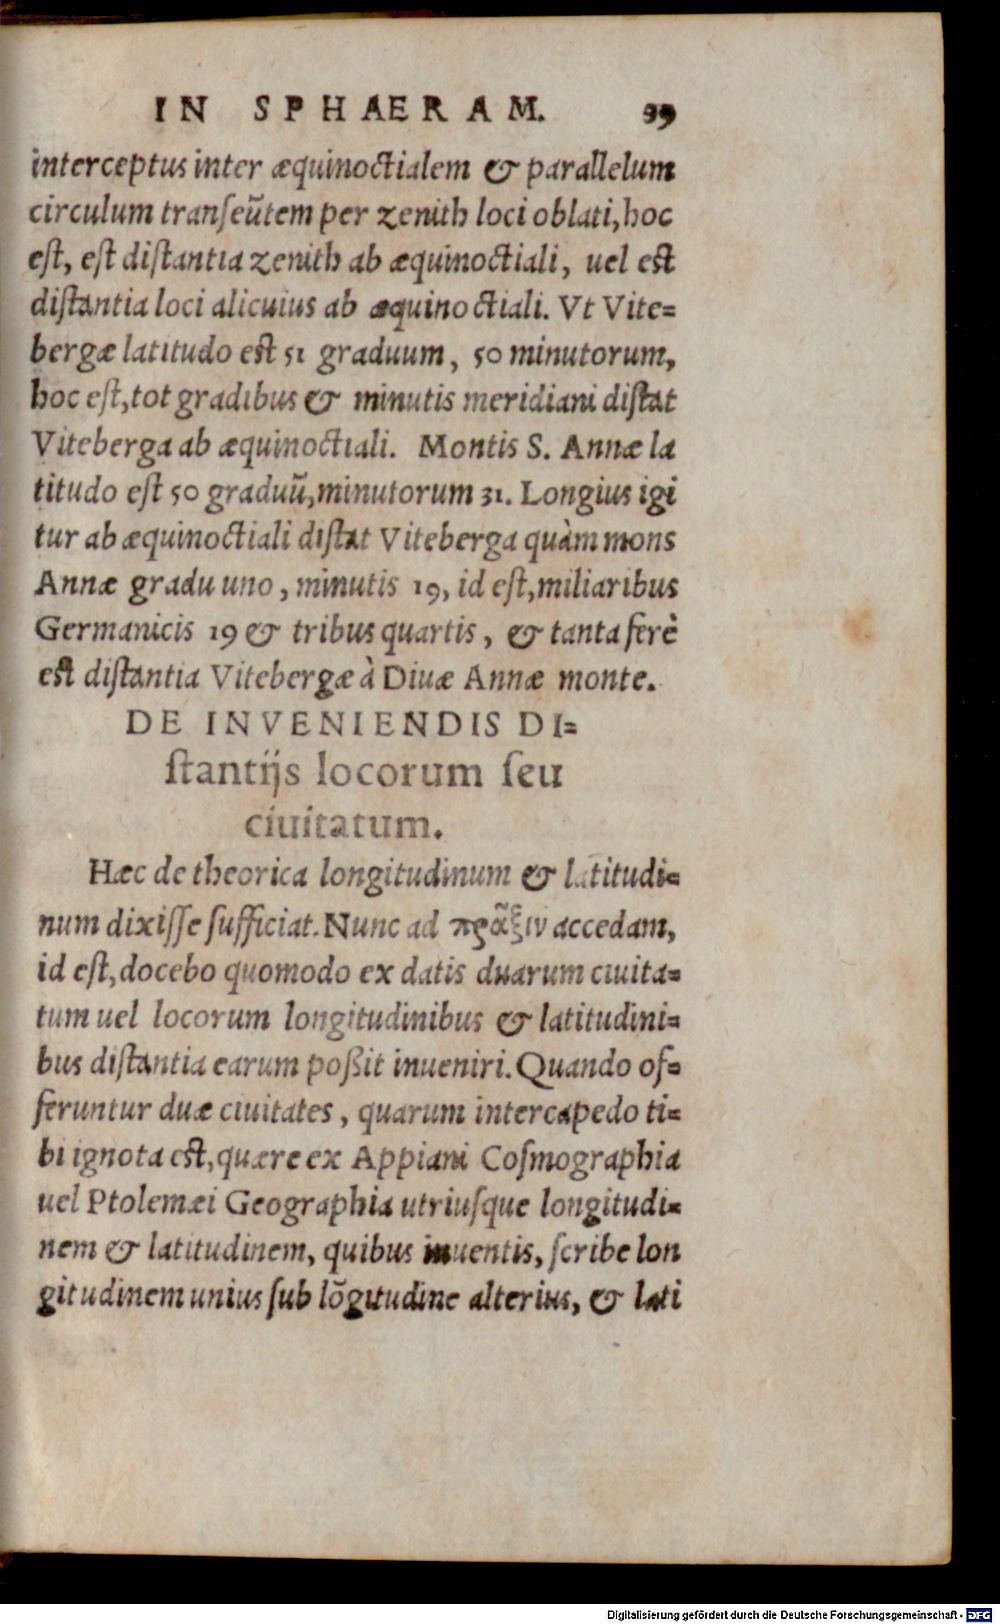 IN SPHAERAM. 99
interceptus inter æquinoctialem & parallelum
circulum tranſeũtem per zenith loci oblati, hoc
eſt, eſt diſtantia zenith ab æquinoctiali, uel eſt
diſtantia loci alicuius ab æquinoctiali. Vt Vite=
bergæ latitudo eſt 51 graduum, 50 minutorum,
hoc eſt, tot gradibus & minutis meridiani diſtat
Viteberga ab æquinoctiali. Montis S. Annæ la
titudo eſt 50 graduũ, minutorum 31. Longius igi
tur ab æquinoctiali diſtat Viteberga quàm mons
Annæ gradu uno, minutis 19, id eſt, miliaribus
Germanicis 19 & tribus quartis, & tanta ferè
eſt diſtantia Vitebergæ à Diuæ Annæ monte.
DE INVENIENDIS DI=
ſtantijs locorum ſeu
ciuitatum.
Hæc de theorica longitudinum & latitudi=
num dixiſſe ſufficiat. Nunc ad πρᾶξιν accedam,
id eſt, docebo quomodo ex datis duarum ciuita=
tum uel locorum longitudinibus & latitudini=
bus diſtantia earum poßit inueniri. Quando of=
feruntur duæ ciuitates, quarum intercapedo ti=
bi ignota eſt, quære ex Appiani Coſmographia
uel Ptolemæi Geographia utriuſque longitudi=
nem & latitudinem, quibus inuentis, ſcribe lon
gitudinem unius ſub lõgitudine alterius, & lati
Digitalisierung gefördert durch die Deutsche Forschungsgemeinschaft - DFG